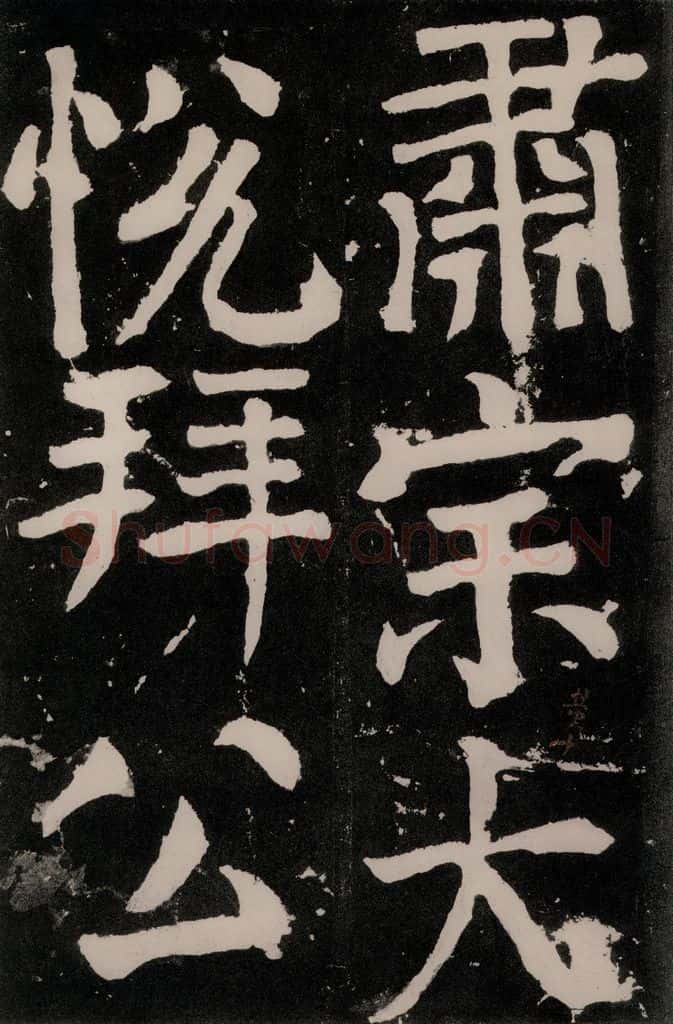 肅宗大
悅拜公
Shufawang.CN